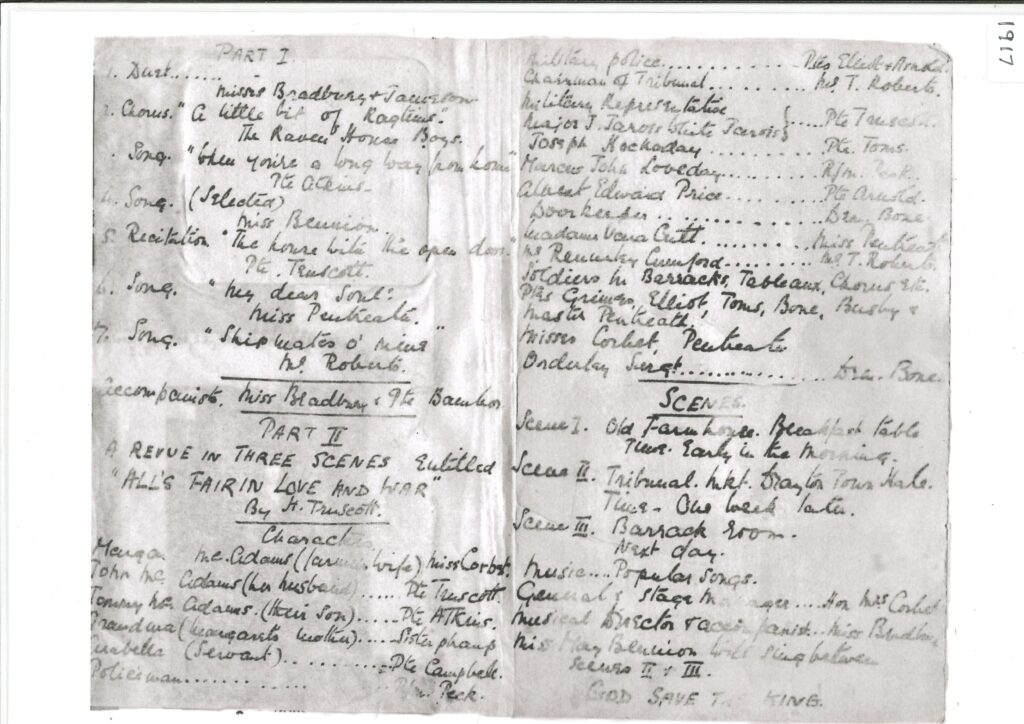 1917
PART I
1. Duet......
Misses Bradbury & Jameson
2. Chorus. "A little bit of Ragtime".
The Raven House Boys.
. Song. "When you're a long way from home"
Pte Atkins.
4. Song. (Selected)
Miss Bennion.
5. Recitation "The house with the open door."
Pte. Truscott.
6. Song. "My dear Soul".
Miss Penkreath.
7. Song. "Shipmates o' mine"
Mr Roberts.
Accompanists. Miss Bradbury & Pte
PART II
A REVUE IN THREE SCENES Entitled
"ALL'S FAIR IN LOVE AND WAR"
By H. Truscott.
Characters
Mc. Adams (farmers wife) Miss Corbet.
John Mc. Adams (her husband)...... Pte Truscott.
Tommy Mc Adams. (their son).... Pte Atkins.
Grandma (Margarets mother).... Sister
(Servant)........... Pte Campbell.
Policeman........... Peck.
Military police............. Ptes Elliot & Arnold.
Chairman of Tribunal.......... Mr. T. Roberts.
Military Representative
Major J. Jaross White Jaross }..... Pte Truscott.
Joseph Hockaday........... Pte. Toms.
Marcus John Loveday........ Rfm. Peck.
Albert Edward Price.... Pte Arnold.
Doorkeeper.............. Drm. Bone.
Madame Vena Cutt......... Miss Penkreath
Mr Rennesley Cumford......... Mr T. Roberts.
Soldiers in Barracks, Tableaux, Chorus etc.
Ptes Grimes, Elliot, Toms, Bone, Busby &
Master Penkreath,
Misses Corbet, Penkreath
Orderley Sergt............... Drm. Bone.
SCENES.
Scene I. Old Farmhouse. Breakfast table
Time. Early in the Morning.
Scene II. Tribunal. Mkt. Drayton Town Hall.
Time - One week later.
Scene III. Barrack Room.
Next day.
Music.... Popular Songs.
General & Stage Manager.... Hon Mrs Corbet
Musical Director & accompanist... Miss Bradbury
Miss May Bennion will sing between
Scenes II & III.
GOD SAVE THE KING.